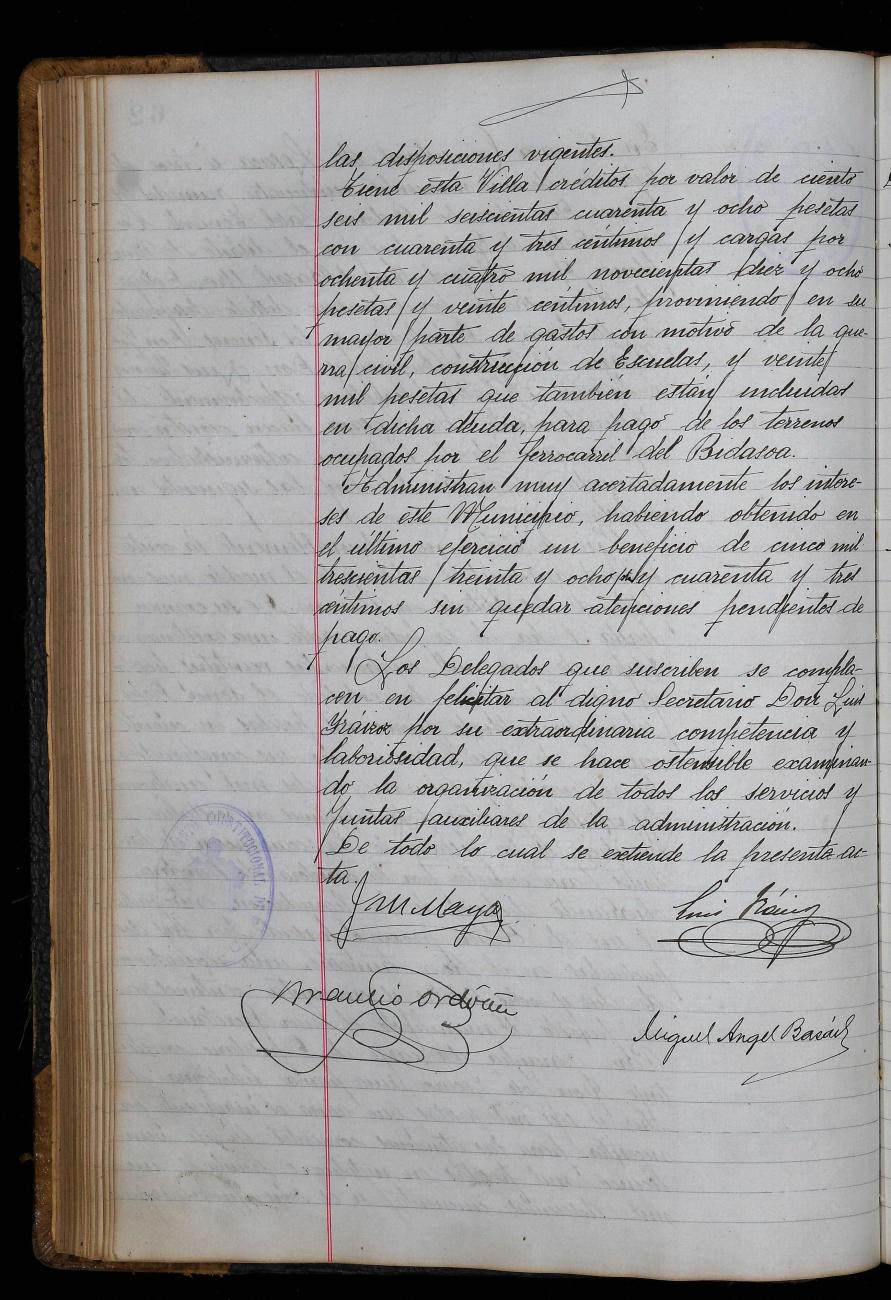 las disposiciones vigentes.
Tiene esta Villa créditos por valor de ciento
seis mil seiscientas cuarenta y ocho pesetas
con cuarenta y tres céntimos y cargas por
ochenta y cuatro mil novecientas diez y ocho
pesetas y veinte centimos, proviniendo en su
mayor parte de gastos con motivo de la gue-
rra civil, construcción de Escuelas, y veinte
mil pesetas que también están incluidas
en dicha deuda, para pago de los terrenos
ocupados por el ferrocarril del Bidasoa.
Administran muy acertadamente los intere-
ses de este Municipio, habiendo obtenido en
el último ejercicio un beneficio de cinco mil
trescientas treinta y ocho y cuarenta y tres
céntimos sin quedar atenciones pendientes de
pago.
Los Delegados que suscriben se compla-
cen en felicitar al digno Secretario Don Luis
por su extraordinaria competencia y
laboriosidad, que se hace ostensible examinan-
do la organización de todos los servicios y
Juntas auxiliares de la administración.
De todo lo cual se extiende la presente ac-
ta.
J M Maya
Luis
Braulio Ordóñez
Miguel Angel
CONSTITUCIONAL